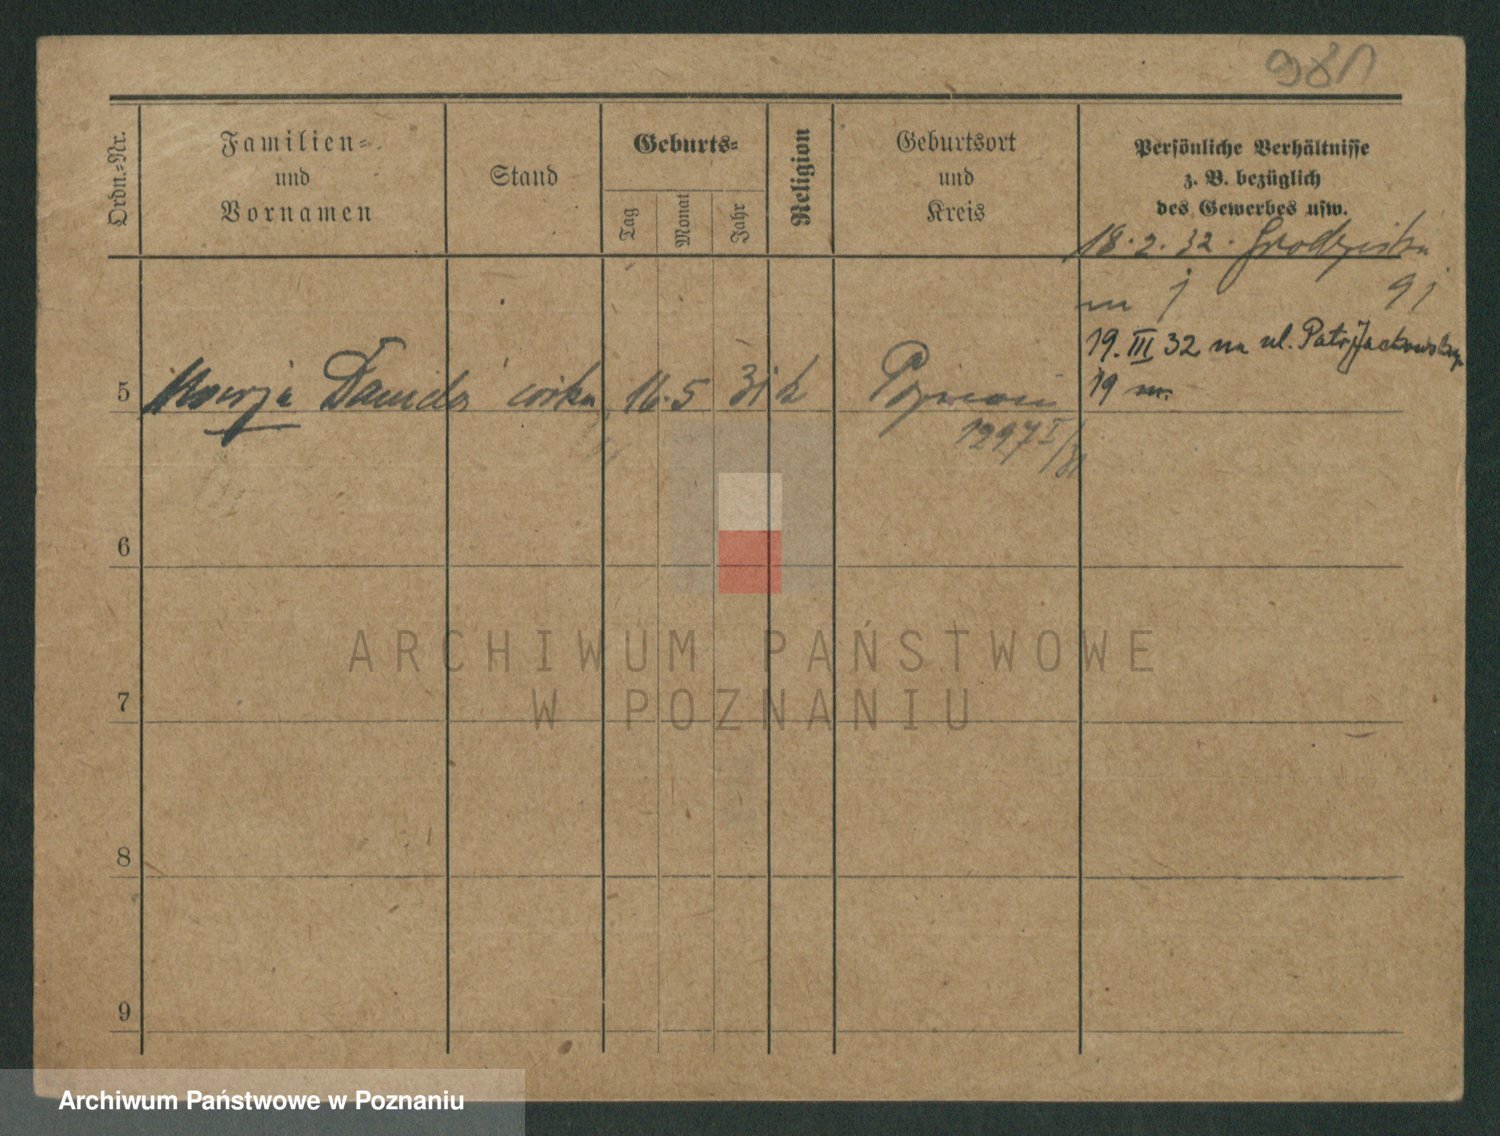 981
Ordn.-Nr.
Familien-
und
Vornamen
Stand
Geburts-
Tag
Monat
Jahr
Religion
Geburtsort
und
Kreis
Persönliche Verhältnisse
z. B. bezüglich
des Gewerbes usw.
18.2.32. Grodziska
m 9
19. III 32 na ul. Patr. Jackowskiego
19 m.
5 Maryja córka 16.5 31 k Poznań
1297 I/31
6
7
8
9
ARCHIWUM PAŃSTWOWE
W POZNANIU
Archiwum Państwowe w Poznaniu